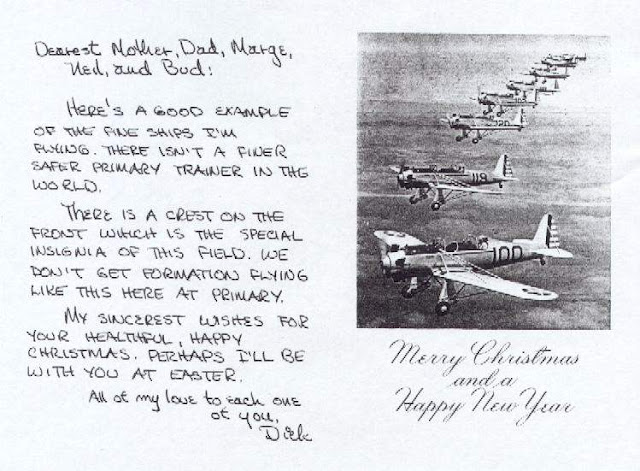 Dearest Mother, Dad, Marge,
Ned, and Bud:
HERE'S A GOOD EXAMPLE
OF THE FINE SHIPS I'M
FLYING. THERE ISN'T A FINER
SAFER PRIMARY TRAINER IN THE
WORLD.
THERE IS A CREST ON THE
FRONT WHICH IS THE SPECIAL
INSIGNIA OF THIS FIELD. WE
DON'T GET FORMATION FLYING
LIKE THIS HERE AT PRIMARY.
MY SINCEREST WISHES FOR
YOUR HEALTHFUL, HAPPY
CHRISTMAS. PERHAPS I'LL BE
WITH YOU AT EASTER.
All of my love to each one
of you,
Dick
120
119
100
Merry Christmas
and a
Happy New Year